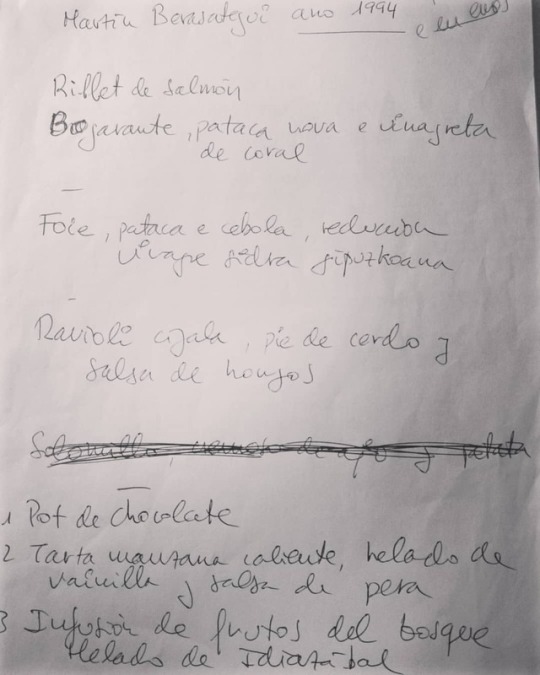 Martin Berasategui ano 1994
e en anos
Rillet de salmón
Bogavante, pataca nova e vinagreta
de coral
Foie, pataca e cebola, reduccion
vinagre sidra gipuzkoana
Ravioli cigala, pie de cerdo y
salsa de hongos
Solomillo, de ajo y patata
1 Pot de chocolate
2 Tarta manzana caliente, helado de
vainilla y salsa de pera
3 Infusión de frutos del bosque
Helado de Idiazábal